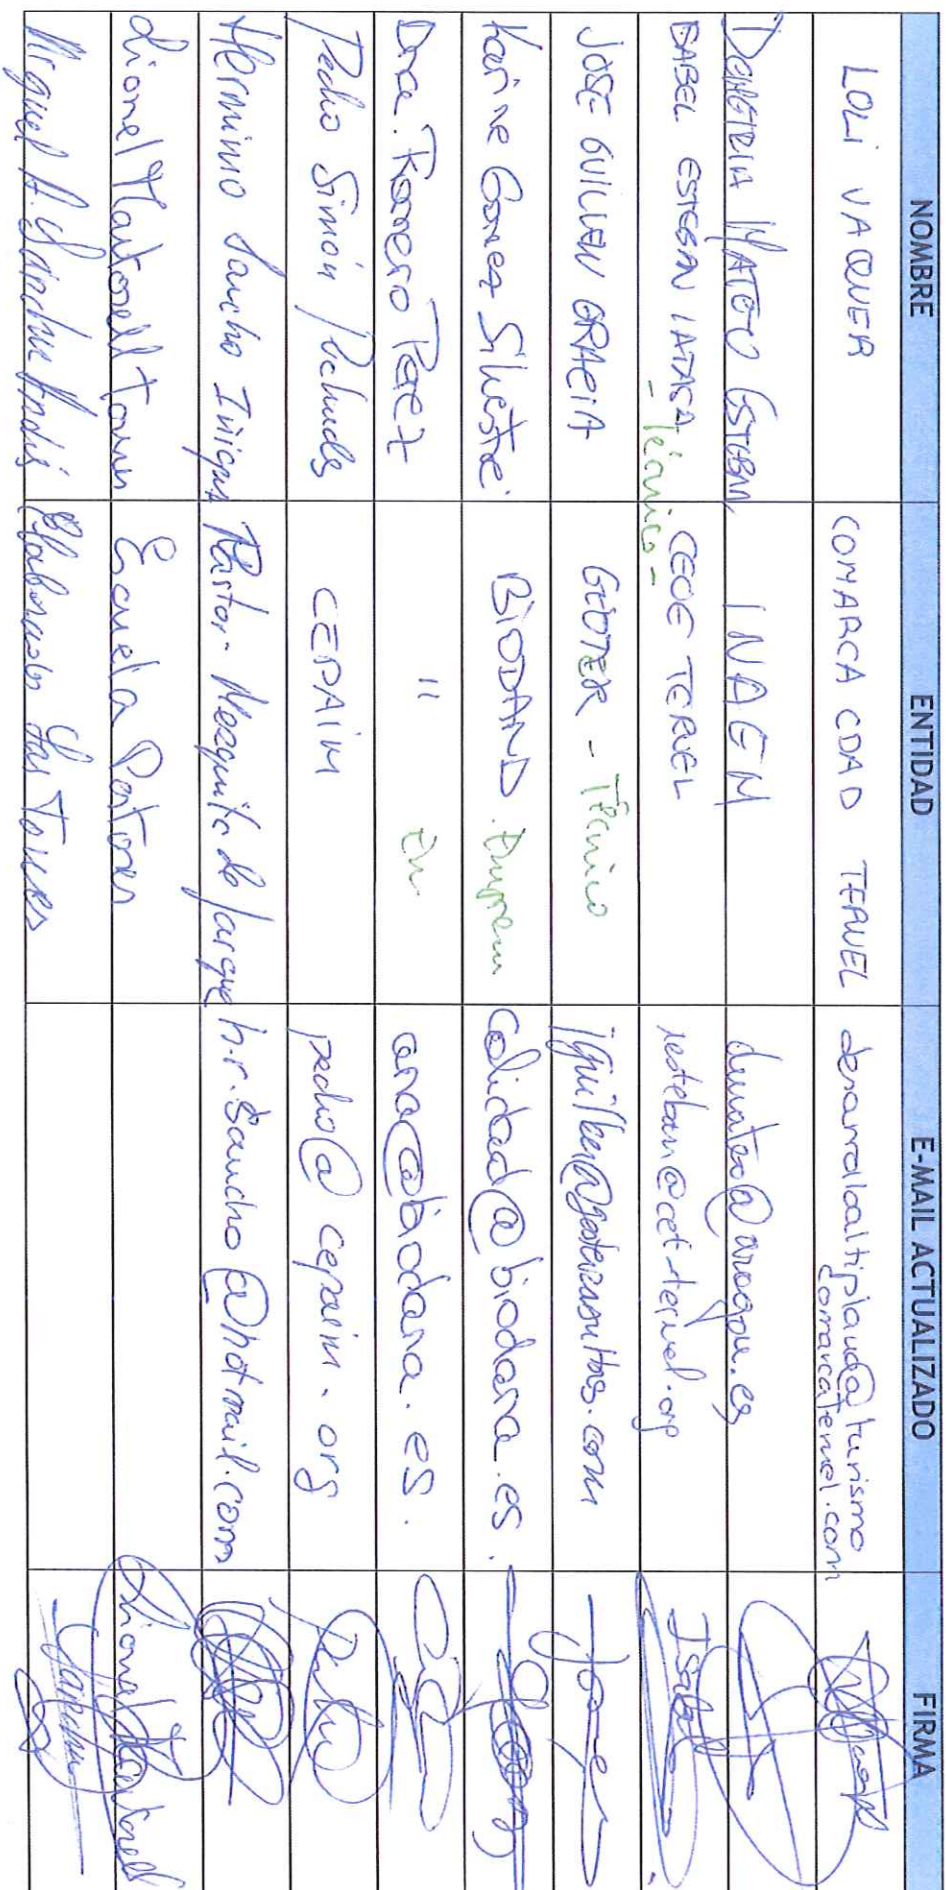 NOMBRE ENTIDAD E-MAIL ACTUALIZADO FIRMA
LOLI VAQUER COMARCA CDAD TERUEL desarrolloaltiplano@turismo
comarcateruel.com
MATEO ESTEBAN INAEM dmateo@aragon.es
ISABEL ESTEBAN CEOE TERUEL iesteban@ceet-teruel.org Isabel
- Técnico -
JOSE GUILLEN GRACIA GEOTER - Técnico Jose
Karine Gomez Silvestre BIODANA.
Calidad@biodana.es.
Ana Romero Perez " Em. ana@biodana.es.
Pedro Simón CEPAIM pedro@cepaim.org Pedro
Herminio Sancho Iñiguez Pastor - Mezquita de Jarque h.r.sancho@hotmail.com
Lionel Martorell Escuela Pastores Lionel Martorell
Miguel A. Sanchez Las Torres Sanchez